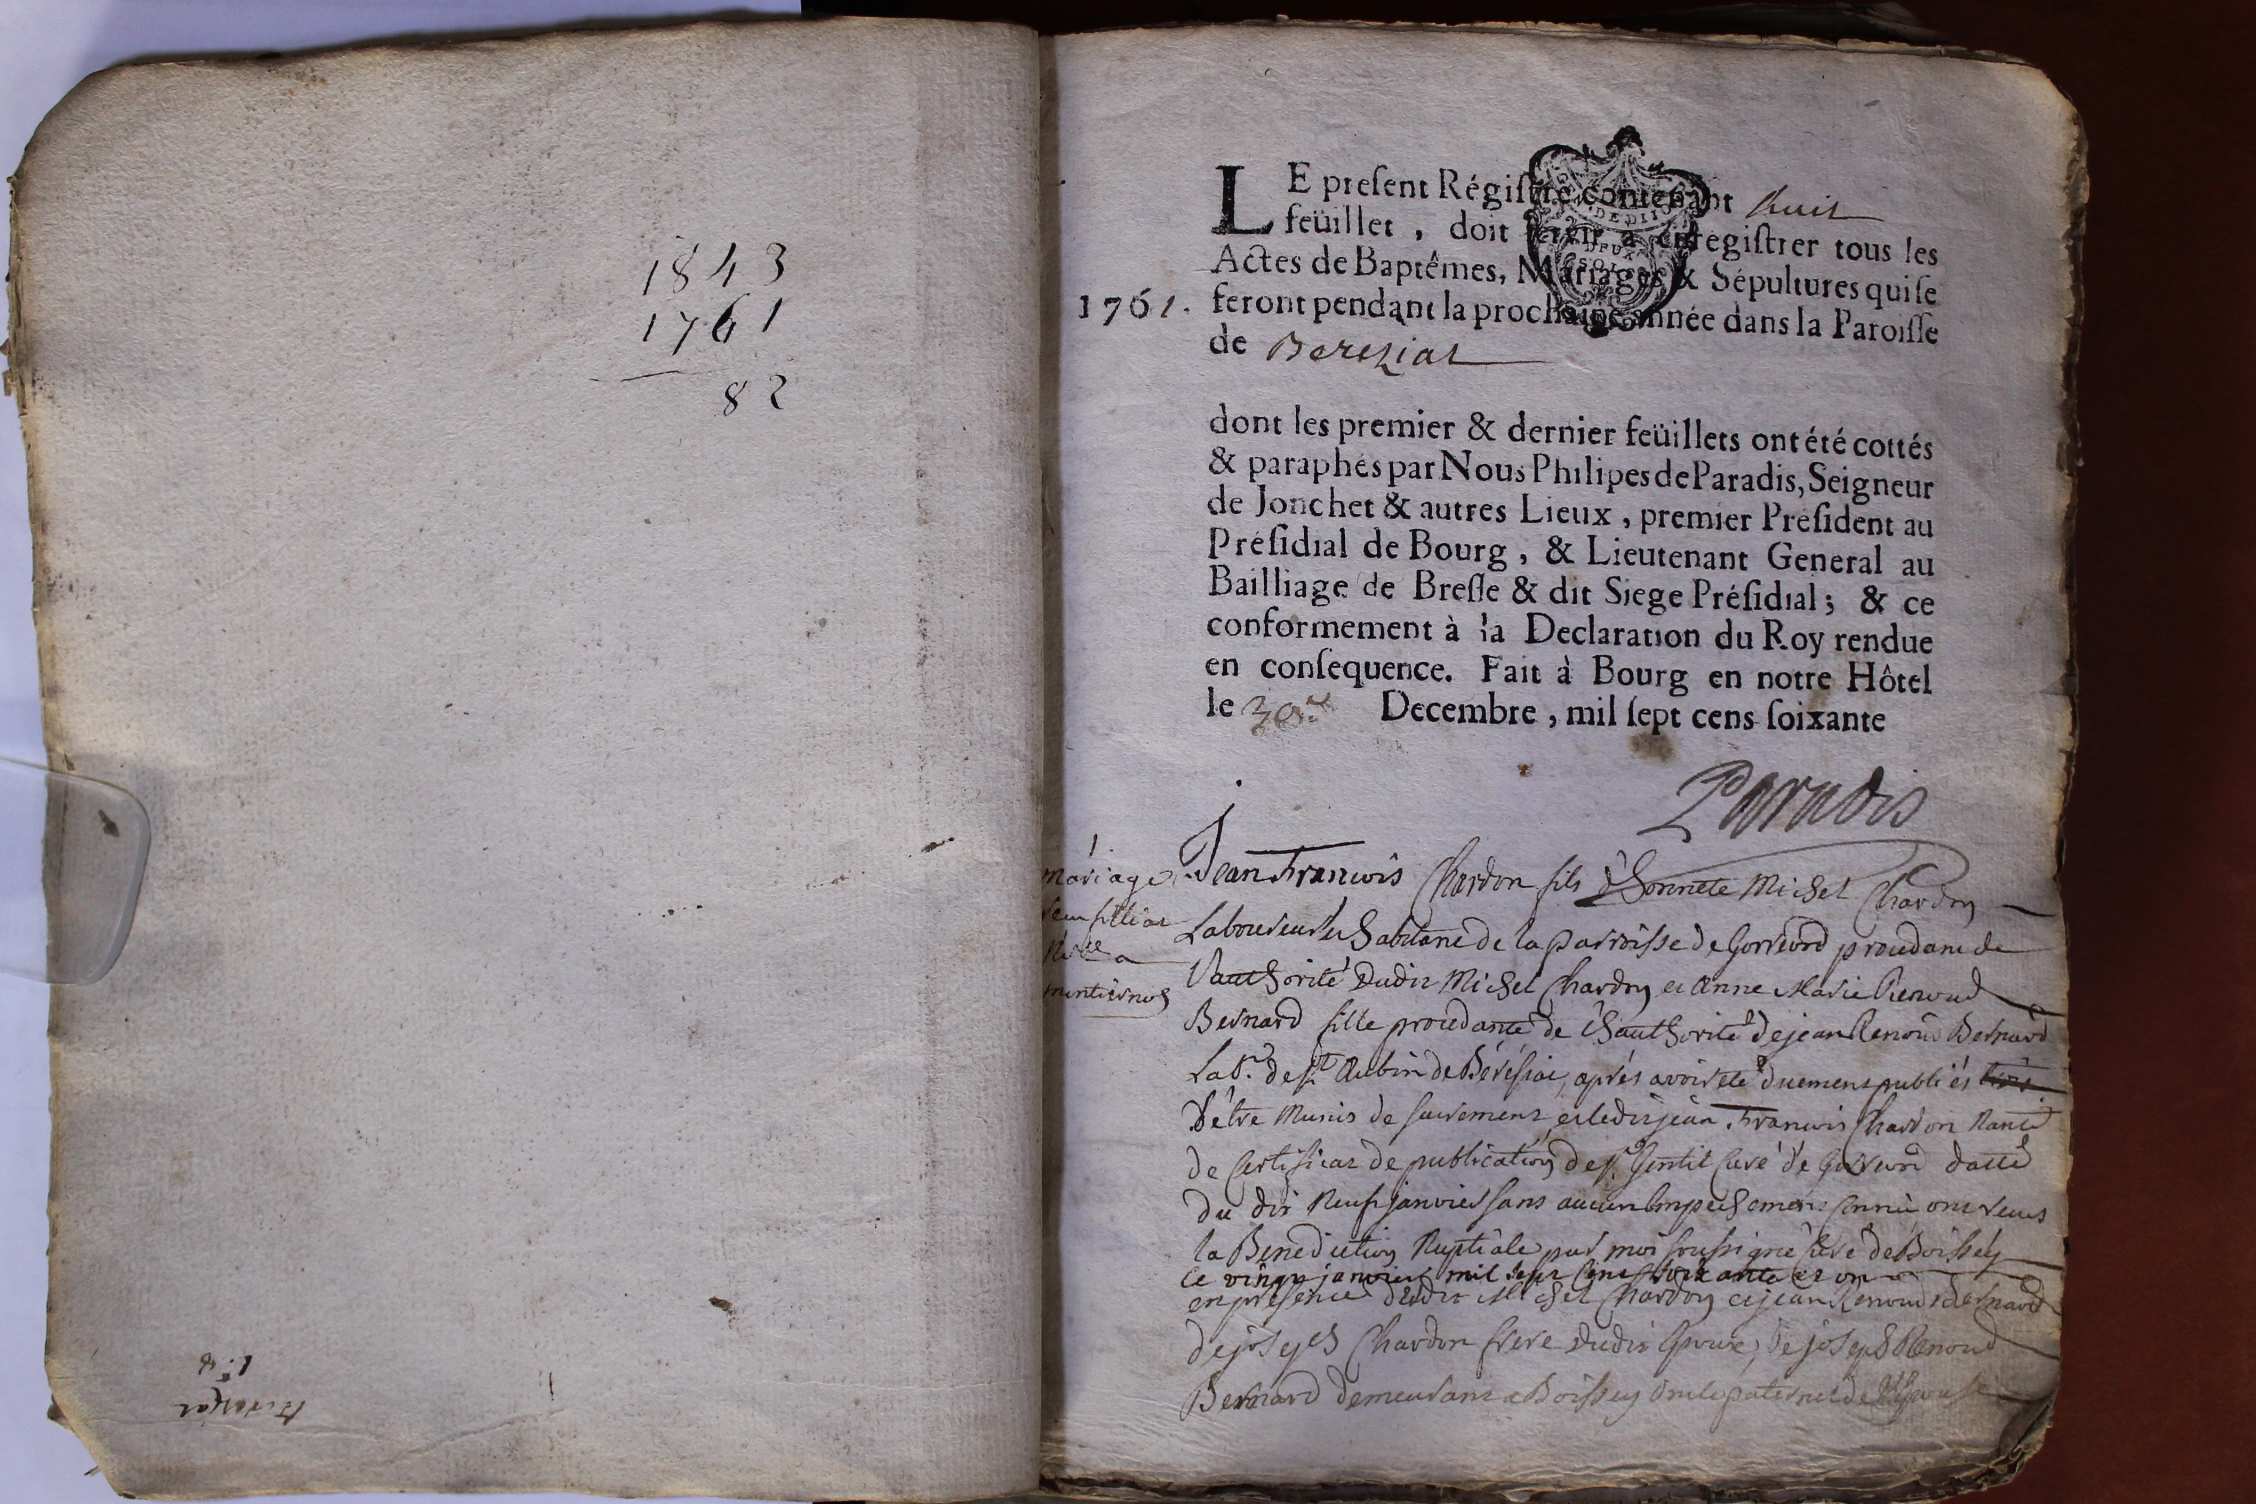 1843
1761
82
LE preſent Régiſtre contenant huit
feüillet, doit ſervir à enregiſtrer tous les
Actes de Baptêmes, Mariages & Sépultures qui ſe
1761. feront pendant la prochaine année dans la Paroiſſe
de Bereziat
dont les premier & dernier feüillets ont été cottés
& paraphés par Nous Philipes de Paradis, Seigneur
de Jonchet & autres Lieux, premier Préſident au
Préſidial de Bourg, & Lieutenant General au
Bailliage de Breſſe & dit Siege Préſidial; & ce
conformement à la Declaration du Roy rendue
en conſequence. Fait à Bourg en notre Hôtel
le 30e Decembre, mil ſept cens ſoixante
Paradis
mariage
Jean François Chardon fils d'honnete Michel Chardon
Laboureur habitant de la parroisse de Gorrevod procedant de
l'authorité dudit Michel Chardon et Anne Marie Renoud
Bernard fille procedante de l'hauthorité de jean Renoud Bernard
Lab.r de st Aubin de Bérésiat, aprés avoir été duement publiés
d'être munis de sacrement et ledit jean François Chardon
de certificat de publication de sr Gentil curé de Gorrevod datté
du dix neuf janvier sans aucun empechement connu ont receus
la Benediction Nuptiale par moi soussigné curé de Boissey
le vingt janvier mil sept cent soixante et un
en présence dudit Michel Chardon et jean Renoud Bernard
de joseph Chardon frere dudit epoux, de joseph Renoud
Bernard demeurant a Boissey oncle paternel de l'epouse